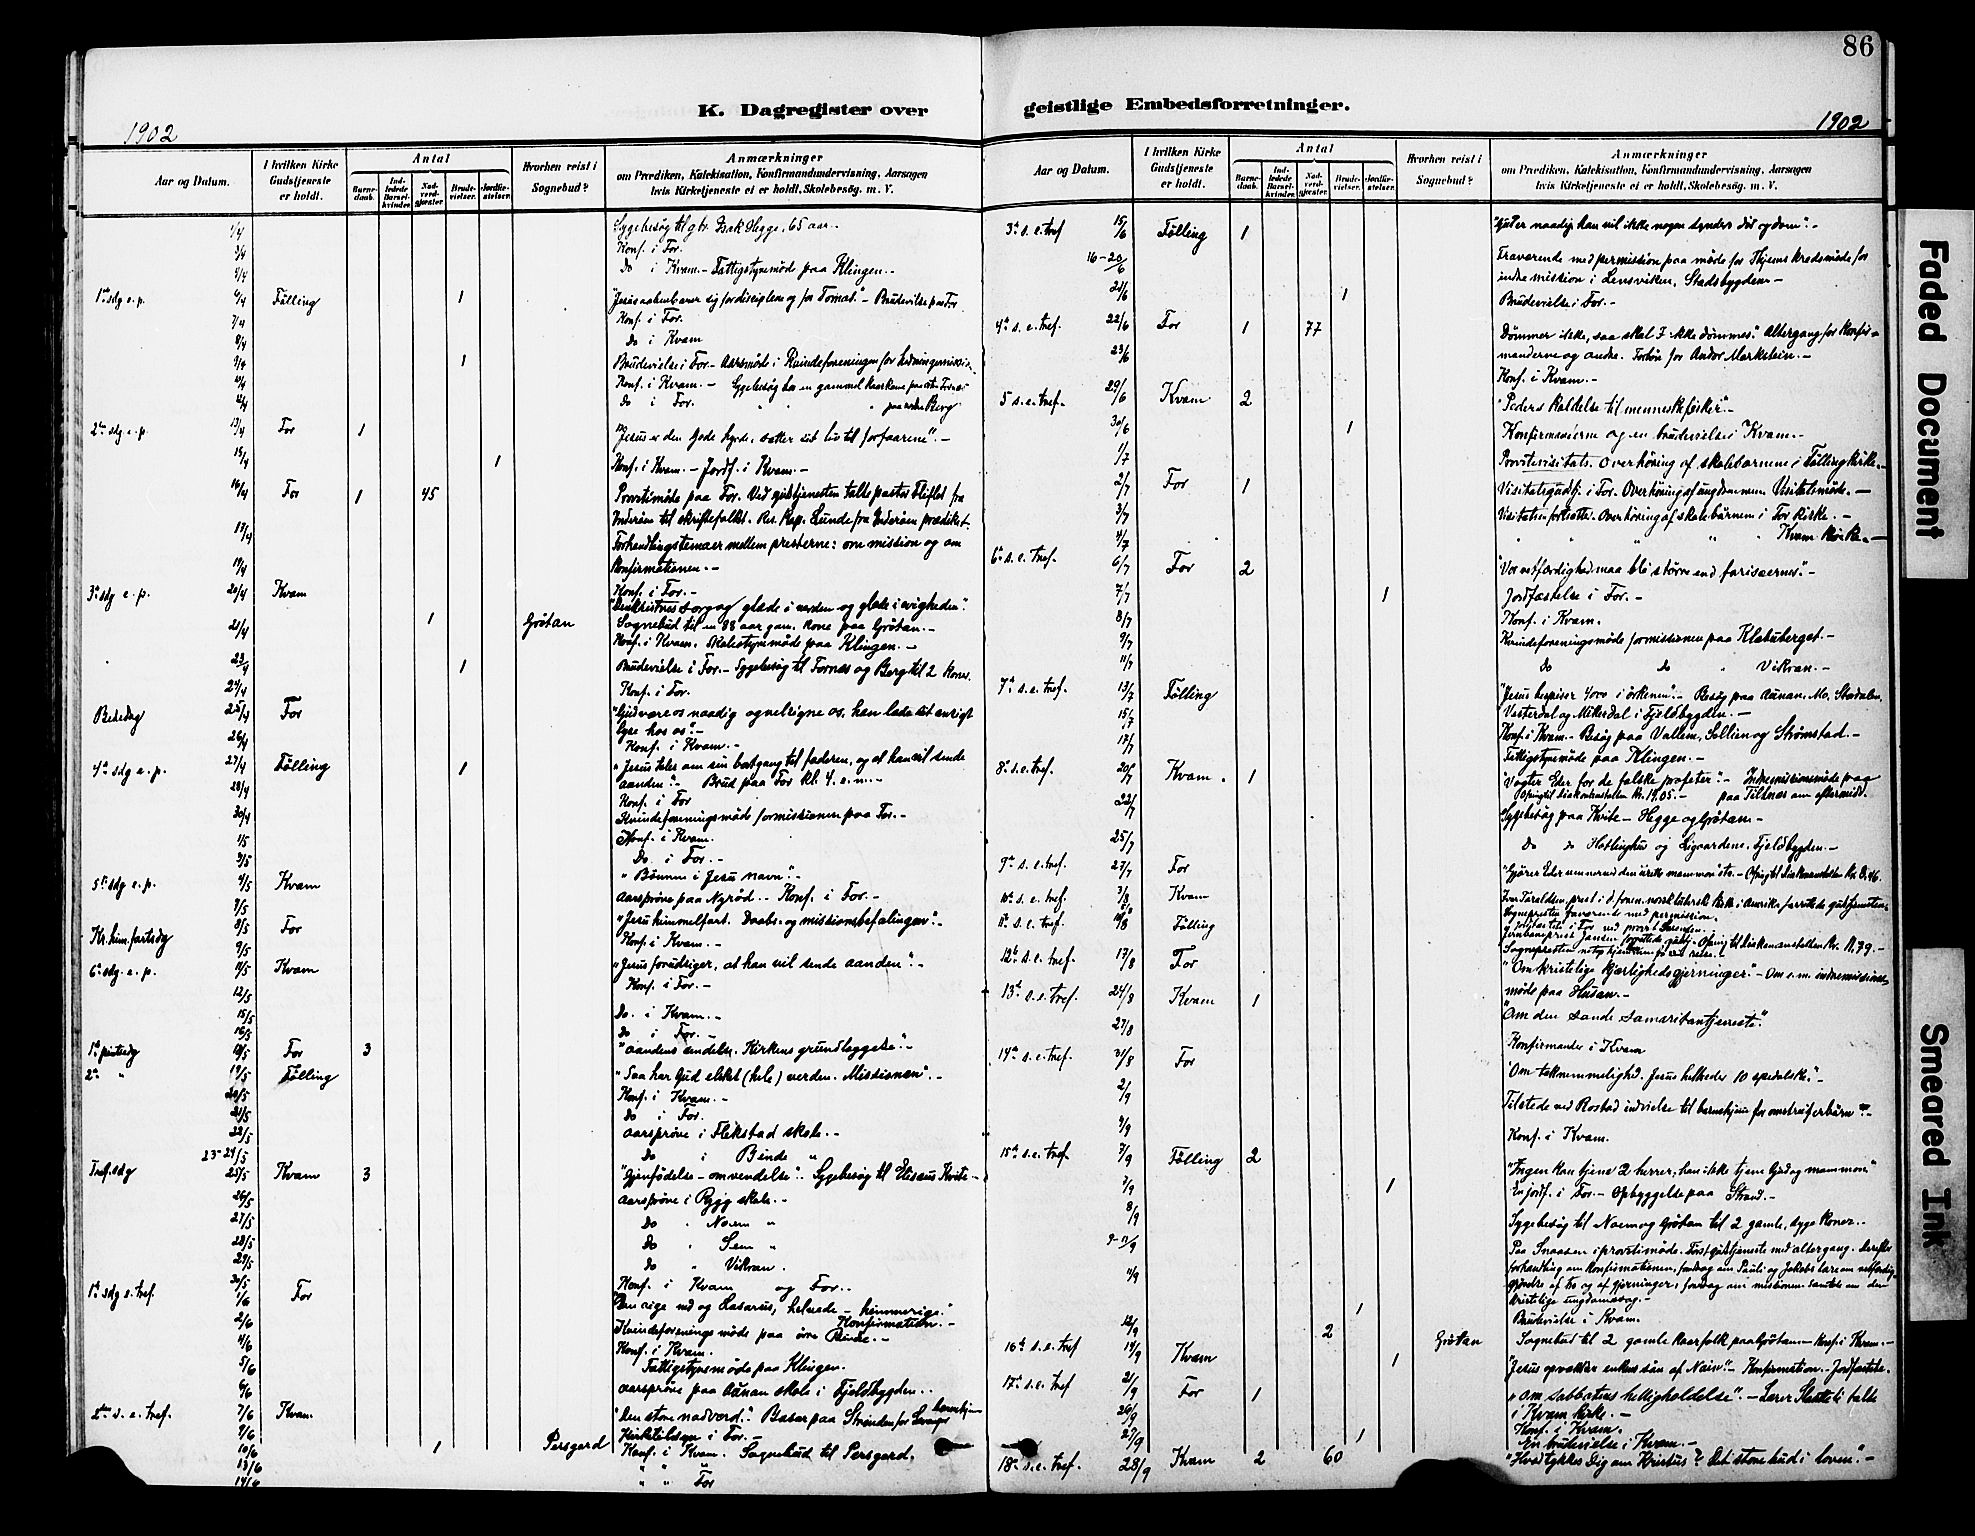 86
K. Dagregister over
geistlige Embedsforretninger.
1902
1902
Aar og Datum.
I hvilken Kirke Gudstjeneste er holdt.
Antal
Barnedaab.
Indledede Barselkvinder.
Nadverdgjæster.
Brudevielser.
Jordfæstelser.
Hvorhen reist i Sognebud?
Anmærkninger
om Prædiken, Katekisation, Konfirmandundervisning, Aarsagen
hvis Kirketjeneste ei er holdt, Skolebesøg. m. V.
1/4 Sygebesøg til gbr. Isak Hegge, 65 aar.
3/4 Konf. i For.
Do i Kvam. - Fattigstyremøde paa Klingen.
1ste sdg e. p. 6/4 Følling 1 "Jesus aabenbarer sig for disciplene og for Tomas" - Brudevielse paa For
7/4 Konf. i For.
8/4 Do i Kvam
9/4 1 Brudevielse i For - Aarsmøde i Kvindeforeningen for hedningemission.
Konf. i Kvam. - Sygebesøg hos en gammel
12/4 Do i For. " " Berg.
2den sdg e. p. 13/4 For 1 "Jesus er den gode hyrde, sætter sit liv til for faarene". -
15/4 1 Konf. i Kvam. - Jordf. i Kvam. -
16/4 For 1 45 Provstimøde paa For. Ved gudstjenesten talte pastor Fliflet fra
Inderøen til skriftefolket. Res. Kap. Lunde fra Inderøen prædiket.
17/4 Forhandlingstemaer mellem presterne: om mission og om
konfirmationen. -
19/4 Konf. i For. -
3de sdg e. p. 20/4 Kvam sorg og glæde i verden og glæde i evigheden".
21/4 1 Grøtan Sognebud til en 88 aar gam. kone paa Grøtan. -
Konf. i Kvam. Skolestyremøde paa Klingen. -
23/4 1 Brudevielse i For. - Sygebesøg til Fornes og Berg til 2 koner.
24/4 Konf. i For.
Bededag 25/4 For "Gud være os naadig og velsigne os, han lade sit ansigt
lyse hos os". -
26/4 Konf. i Kvam. -
4de sdg e. p. 27/4 Følling 1 "Jesus taler om sin bortgang til faderen, og at han vil sende
aanden". - Brud paa For kl. 4. e. m. -
28/4 Konf. i For
30/4 Kvindeforeningsmøde for missionen paa For. -
1/5 Konf. i Kvam.
3/5 Do. i For. -
5te sdg e. p. 4/5 Kvam "Bønnen i Jesu navn". -
7/5 Aarsprøve paa Nyrød. - Konf. i For. -
Kr. him.fartsdg 8/5 For "Jesu himmelfart. Daabs- og missionsbefalingen". -
9/5 Konf. i Kvam. -
6te sdg. e. p. 11/5 Kvam "Jesus forudsiger, at han vil sende aanden". -
12/5 Konf. i For. -
15/5 Do. i Kvam. -
16/5 Do i For. -
1ste pintsedg 18/5 For 3 "Aandens sendelse. Kirkens grundlæggelse". -
2den " 19/5 Følling "Saa har Gud elsket (hele) verden. Missionen". -
20/5 Konf. i Kvam. -
21/5 Do i For.
22/5 Aarsprøve i Flekstad skole. -
23-24/5 Do i Binde "
Tref.sdg 25/5 Kvam 3 "Gjenfødelse - omvendelse". Sygebesøg til Eliseus Kvite -
26/5 Aarsprøve i Rygg skole. -
27/5 Do " Naem "
28/5 Do " Sem "
29/5 Do " Vikran. -
30/5 Konf. i Kvam og For.
1ste sdg e. tref. 1/6 For Den rige md og Lasarus, helvede - himmerige".
Konfirmation. -
2/6 Kvindeforeningsmøde paa øvre Binde. -
4/6 Konf. i Kvam.
5/6 Fattigstyremøde paa Klingen.
6/6 Aarsprøve paa Aunan skole i Fjeldbygden.
2den s. e. tref. 7/6 Kvam "Den store nadverd". Basar paa Stranden for
9/6 i For. -
10/6 1 Persgerd Konf. i Kvam. Sognebud til Persgerd.
13/6 " " "
14/6 " " For
Aar og Datum.
I hvilken Kirke Gudstjeneste er holdt.
Antal
Barnedaab.
Indledede Barselkvinder.
Nadverdgjæster.
Brudevielser.
Jordfæstelser.
Hvorhen reist i Sognebud?
Anmærkninger
om Prædiken, Katekisation, Konfirmandundervisning, Aarsagen
hvis Kirketjeneste ei er holdt, Skolebesøg. m. V.
3de s. e. tref 15/6 Følling 1 "Gud er naadig han vil ikke nogen synders død og dom". -
16-20/6 Fraværende med permission paa møde for kredsmøde for
indre mission i Lensviken, Stadsbygden -
21/6 1 Brudevielse i For. -
4de s. e. tref. 22/6 For 1 77 Dømmer ikke, saa skal I ikke dømmes". Altergang for konfir-
23/6 manderne og andre. Forbøn for Andor Markstein. -
Konf. i Kvam. -
5 s. e. tref. 29/6 Kvam 2 "Peders kaldelse til menneskefisker". -
30/6 1 Konfirmanderne og en brudevielse i Kvam. -
1/7 Provstevisitats. Overhøring af skolebarnene i Følling kirke. -
2/7 For 1 Visitatsgudstj. i For. Overhøring af ungdommen Visitatsmøde. -
3/7 Visitatsen fortsattes. Overhøring af skolebørnene i For kirke. -
4/7 " " " " " Kvam kirke. -
6te s. e. tref. 6/7 For 2 "Vor retfærdighed maa bli større end farisæernes". -
7/7 1 Jordfæstelse i For. -
8/7 Konf. i Kvam.
9/7 Kvindeforeningsmøde for missionen paa Klæbuberget. -
11/7 do do " Vikran. -
7de s. e. tref. 13/7 Følling "Jesus bespiser 4000 i ørkenen". - Besøg paa Aunan. Mo. Stordalen,
15/7 Vesterdal og Mikerdal i Fjeldbygden. -
17/7 Konf. i Kvam. - Besøg paa Vallem, Sollien og Strømstad. -
Fattigstyremøde paa Klingen. -
8de s. e. tref. 20/7 Kvam 1 "Vogter Eder for de falske profeter". - Indremissionsmøde paa
Ofring til diakonanstalten kr. 19.05. - paa Tiltnes om eftermidd.
22/7 Sygebesøg paa Kvite - Hegge og Grøtan -
25/7 Do do og Sigardene, Fjeldbygden. -
9de s. e. tref. 27/7 For "Gjører Eder venner ved den urette mammon" otr. - Ofring til diakonanstalten kr. 8.46.
10de s. e. tref. 3/8 Kvam Iver Taraldsen, prest i d. foren. norsk luthersk kirke i Amerika forrettede gudstjenesten.
Sognepresten fraværende med permission.
11te s. e. tref. 10/8 Følling Jernbaneprest Jansen forrettede gudstj. Ofring til diakonanstalten kr. 11.79. -
12te s. e. tref. 17/8 For "Om kristelige kjærlighedsgjerninger". - Om e. m. indremissions-
møde paa Husan. -
13de s. e. tref. 24/8 Kvam 1 "Om den sande samaritantjeneste".
27/8 Konfirmander i Kvam
14de s. e. tref. 31/8 For "Om taknemmelighed. Jesus helbreder 10 spedalske". -
2/9 Tilstede ved Rostad indvielse til barnehjem for omstreiferbørn. -
3/9 Konf. i Kvam.
15de s. e. tref. 7/9 Følling 2 "Ingen kan tjene 2 herrer, han ikke tjene Gud og mammon"
7/9 1 En jordf. i For. - Opbyggelse paa Strand. -
8/9 Sygebesøg til Naem og Grøtan til 2 gamle, syge koner.
9-11/9 Paa Snaasen i provstimøde. Først gudstjeneste med altergang. Derefter
forhandling om konfirmationen, foredrag om Pauli og Jakobs lære om retfærdig-
11/9 gjørelse af tro og af gjerninger, foredrag om missionen samtale om den
kristelige ungdomssag. -
12/9 1 Brudevielse i Kvam.
2 Grøtan Sognebud til 2 gamle kaarfolk paa Grøtan - Konf. i Kvam. -
16de s. e. tref 14/9 Kvam 1 "Jesus opvækker enkens søn af Nain". - Konfirmation. - Jordfæstelse.
17de s. e. tref 21/9 For 1 "Om sabbatens helligholdelse". - Lærer talte
i Kvam kirke. -
26/9 Konf. i Kvam.
27/9 1 En brudevielse i Kvam. -
18de s. e. tref. 28/9 Kvam 2 60 "Hvad tykkes Dig om Kristus? Det store bud i loven". -
Faded Document
Smeared Ink